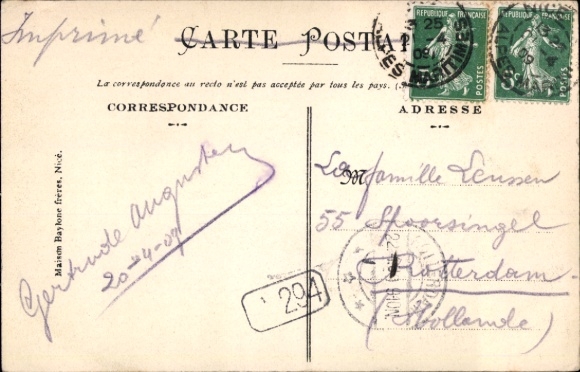 Imprimé
CARTE POSTALE
La correspondance au recto n'est pas acceptée par tous les pays.
CORRESPONDANCE
ADRESSE
REPUBLIQUE FRANÇAISE
POSTES
REPUBLIQUE FRANÇAISE
POSTES
NICE
MARITIMES
La famille Leussen
55 Spoorsingel
Rotterdam
(Hollande)
Gertrude Augusten
20-4-09
Maison Baylone frères, Nice.
294